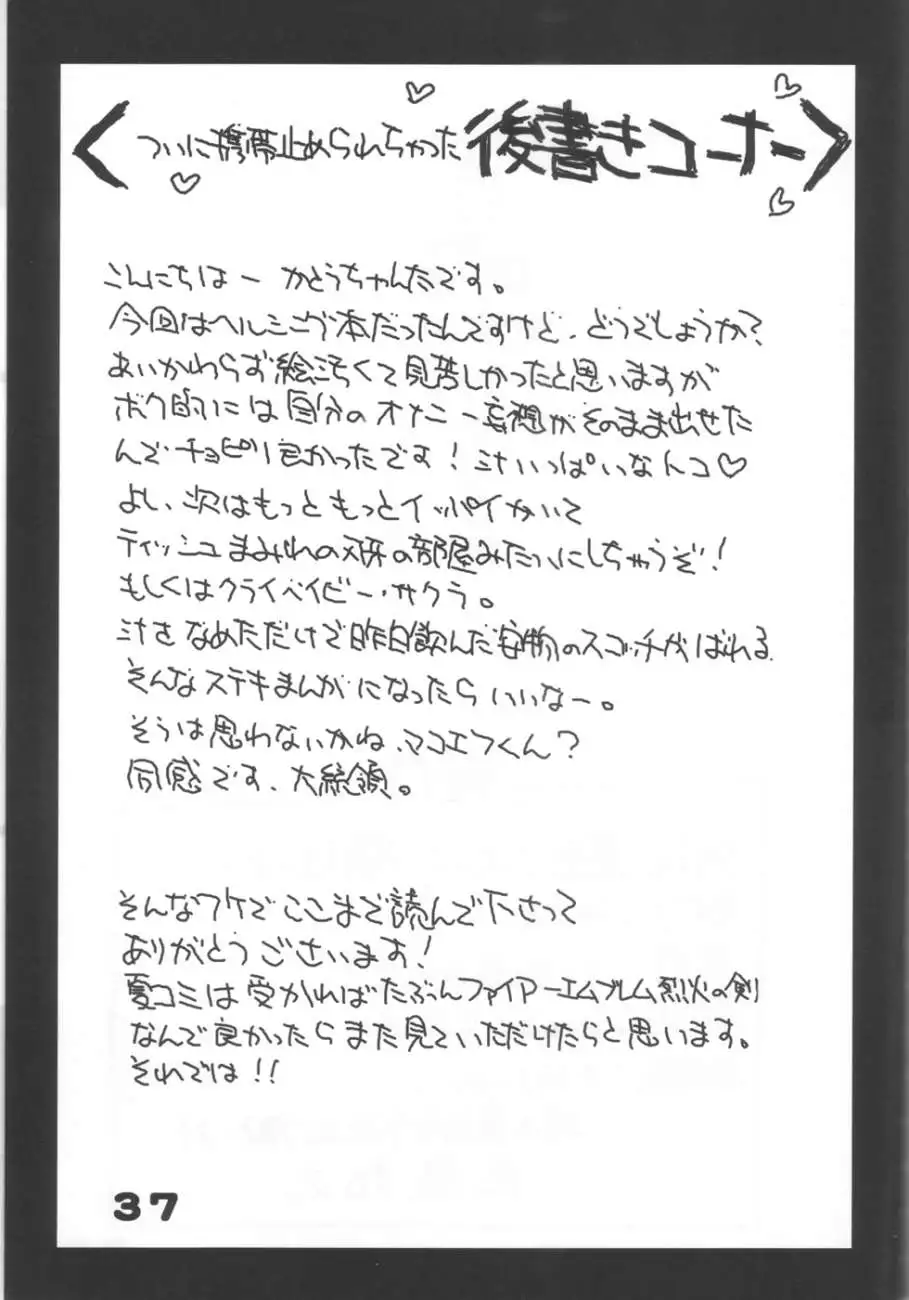 ついに携帯止められちゃった 後書きコーナー
こんにちはー かとうちゃんたです。
今回はヘルシング本だったんですけど、どうでしょうか?
あいかわらず絵汚くて見苦しかったと思いますが
ボク的には自分のオナニー妄想がそのまま出せた
んで、チョピリ良かったです! 汁いっぱいなトコ♡
よし、次はもっともっとイッパイかいて
ティッシュまみれの の部屋みたいにしちゃうぞ!
もしくはクライベイビー・サクラ。
汁をなめただけで昨日飲んだ安物のスコッチがばれる
そんなステキまんがになったらいいなー。
そうは思わないかね、マコエフくん?
同感です、大統領。
そんなワケでここまで読んで下さって
ありがとうございます!
夏コミは受かればたぶんファイアーエムブレム烈火の剣
なんで良かったらまた見ていただけたらと思います。
それでは!!
37